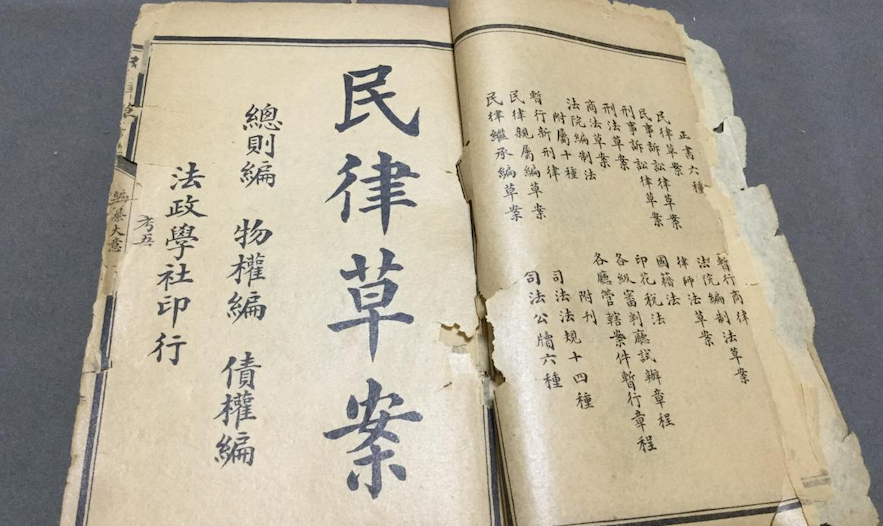 正書六種
民律草案
民事訴訟律草案
刑事訴訟律草案
刑法草案
商法草案
法院編制法
附屬十種
暫行新刑律
民律親屬編草案
民律繼承編草案
暫行商律
法院編制法草案
律師法草案
國籍法
印花稅法
各級審判廳試辦章程
各廳管轄案件暫行章程
附刊
司法法規十四種
司法公牘六種
民律草案
總則編 物權編 債權編
法政學社印行
考五
大意